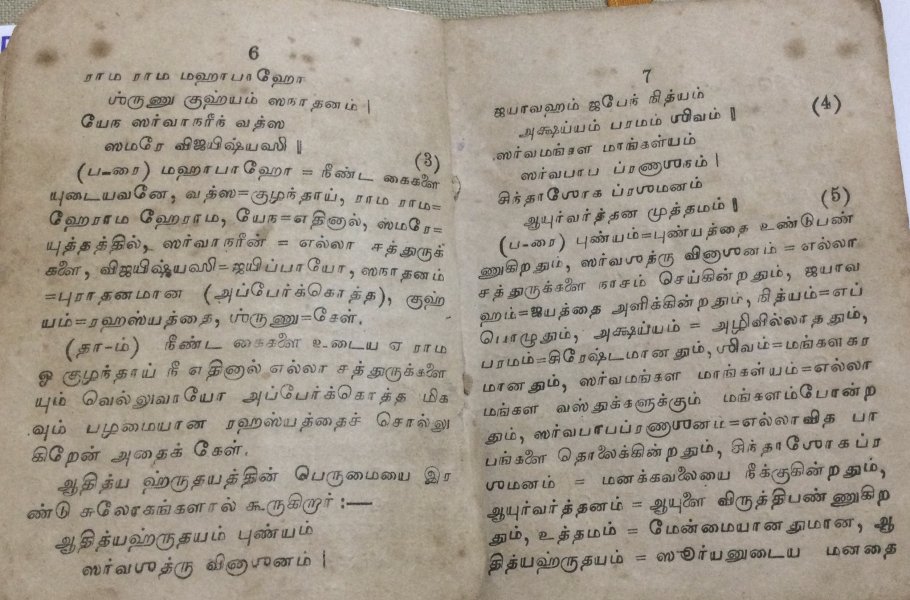 6
ராம ராம மஹாபாஹோ
ஶ்ருணு குஹ்யம் ஸநாதனம் |
யேந ஸர்வாநரீந் வத்ஸ
ஸமரே விஜயிஷ்யஸி ‖
(3)
(ப-ரை) மஹாபாஹோ = நீண்ட கைகளை
யுடையவனே, வத்ஸ=குழந்தாய், ராம ராம=
ஹேராம ஹேராம, யேந=எதினால், ஸமரே=
யுத்தத்தில், ஸர்வாநரீன் = எல்லா சத்துருக்
களை, விஜயிஷ்யஸி=ஜயிப்பாயோ, ஸநாதனம்
=புராதனமான (அப்பேர்க்கொத்த), குஹ்
யம்=ரஹஸ்யத்தை, ஶ்ருணு=கேள்.
(தா-ம்) நீண்ட கைகளை உடைய ஏ ராம
ஓ குழந்தாய் நீ எதினால் எல்லா சத்துருக்களை
யும் வெல்லுவாயோ அப்பேர்க்கொத்த மிக
வும் பழமையான ரஹஸ்யத்தைச் சொல்லு
கிறேன் அதைக் கேள்.
ஆதித்ய ஹ்ருதயத்தின் பெருமையை இர
ண்டு சுலோகங்களால் கூருகிறார்:—
ஆதித்யஹ்ருதயம் புண்யம்
ஸர்வஶத்ரு வினாஶனம் |
7
ஜயாவஹம் ஜபேந் நித்யம்
(4)
அக்ஷய்யம் பரமம் ஶிவம் ‖
ஸர்வமங்கள மாங்கள்யம்
ஸர்வபாப ப்ரணாஶநம் |
சிந்தாஶோக ப்ரஶமனம்
(5)
ஆயுர்வர்த்தன முத்தமம் ‖
(ப-ரை) புண்யம்=புண்யத்தை உண்டுபண்
ணுகிறதும், ஸர்வஶத்ரு வினாஶனம் = எல்லா
சத்துருக்களை நாசம் செய்கின்றதும், ஜயாவ
ஹம்=ஜயத்தை அளிக்கின்றதும், நித்யம்=எப்
பொழுதும், அக்ஷய்யம் = அழிவில்லாததும்,
பரமம்=சிரேஷ்டமானதும், ஶிவம்=மங்களகர
மானதும், ஸர்வமங்கள மாங்கள்யம்=எல்லா
மங்கள வஸ்துக்களுக்கும் மங்களம்போன்ற
தும், ஸர்வபாபப்ரணாஶனம்=எல்லாவித பா
பங்களை தொலைக்கின்றதும், சிந்தாஶோகப்ர
ஶமனம் = மனக்கவலையை நீக்குகின்றதும்,
ஆயுர்வர்த்தனம் = ஆயுளை விருத்திபண்ணுகிற
தும், உத்தமம் = மேன்மையானதுமான, ஆ
தித்யஹ்ருதயம் = ஸூர்யனுடைய மனதை